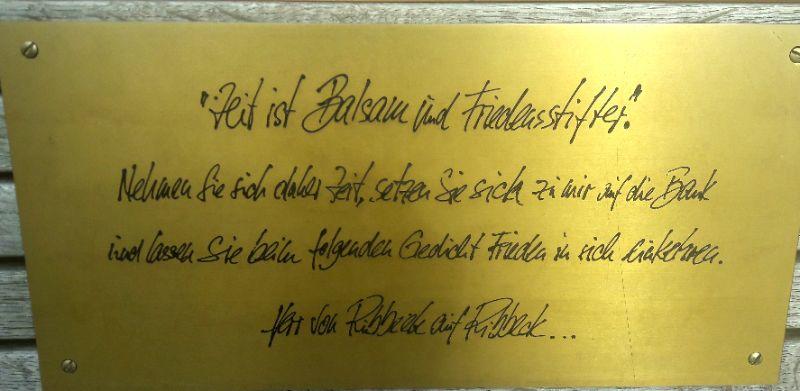 "Zeit ist Balsam und Friedensstifter."
Nehmen Sie sich daher Zeit, setzen Sie sich zu mir auf die Bank
und lassen Sie beim folgenden Gedicht Frieden in sich einkehren.
Herr von Ribbeck auf Ribbeck...